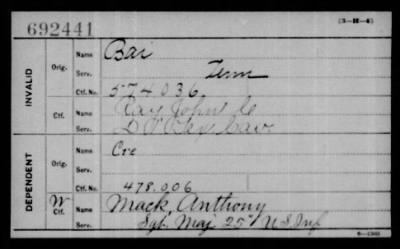 692441
(3-H-4)
INVALID
Orig.
Name
Bai
Serv.
Term
Ctf. No.
574036
Ctf.
Name
Ray, John C
Serv.
Cav
DEPENDENT
Orig.
Name
Cre
Serv.
Ctf. No.
478.006
W
Ctf.
Name
Mack, Anthony
Serv.
Sgt. Maj 25" U.S. Inf